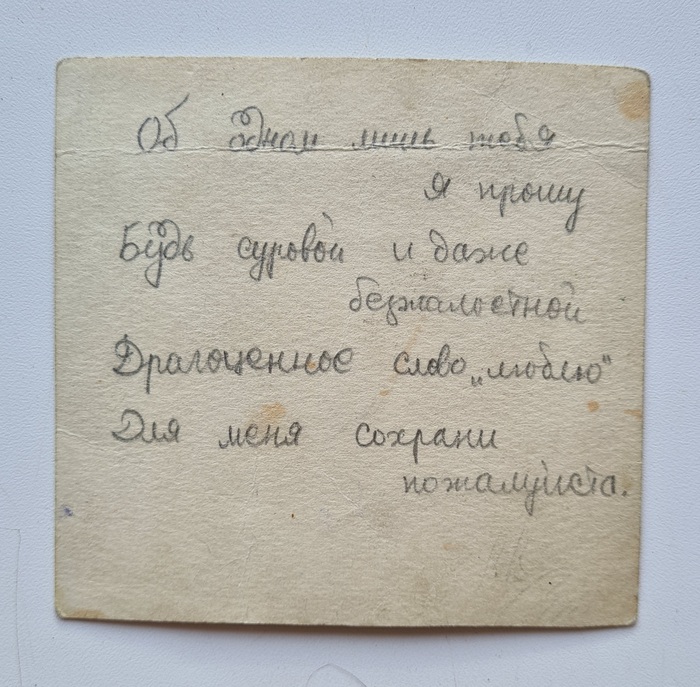 Об одном лишь тебя
я прошу
Будь суровой и даже
безжалостной
Драгоценное слово „люблю“
Для меня сохрани
пожалуйста.